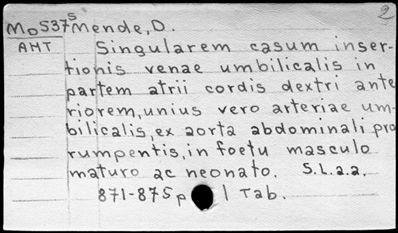 2
MoS37s Mende, D.
AHT Singularem casum inser-
tionis venae umbilicalis in
partem atrii cordis dextri ante
riorem, unius vero arteriae um-
bilicalis, ex aorta abdominali pro
rumpentis, in foetu masculo
maturo ac neonato. S.L.a.a.
871-875p 1 Tab.